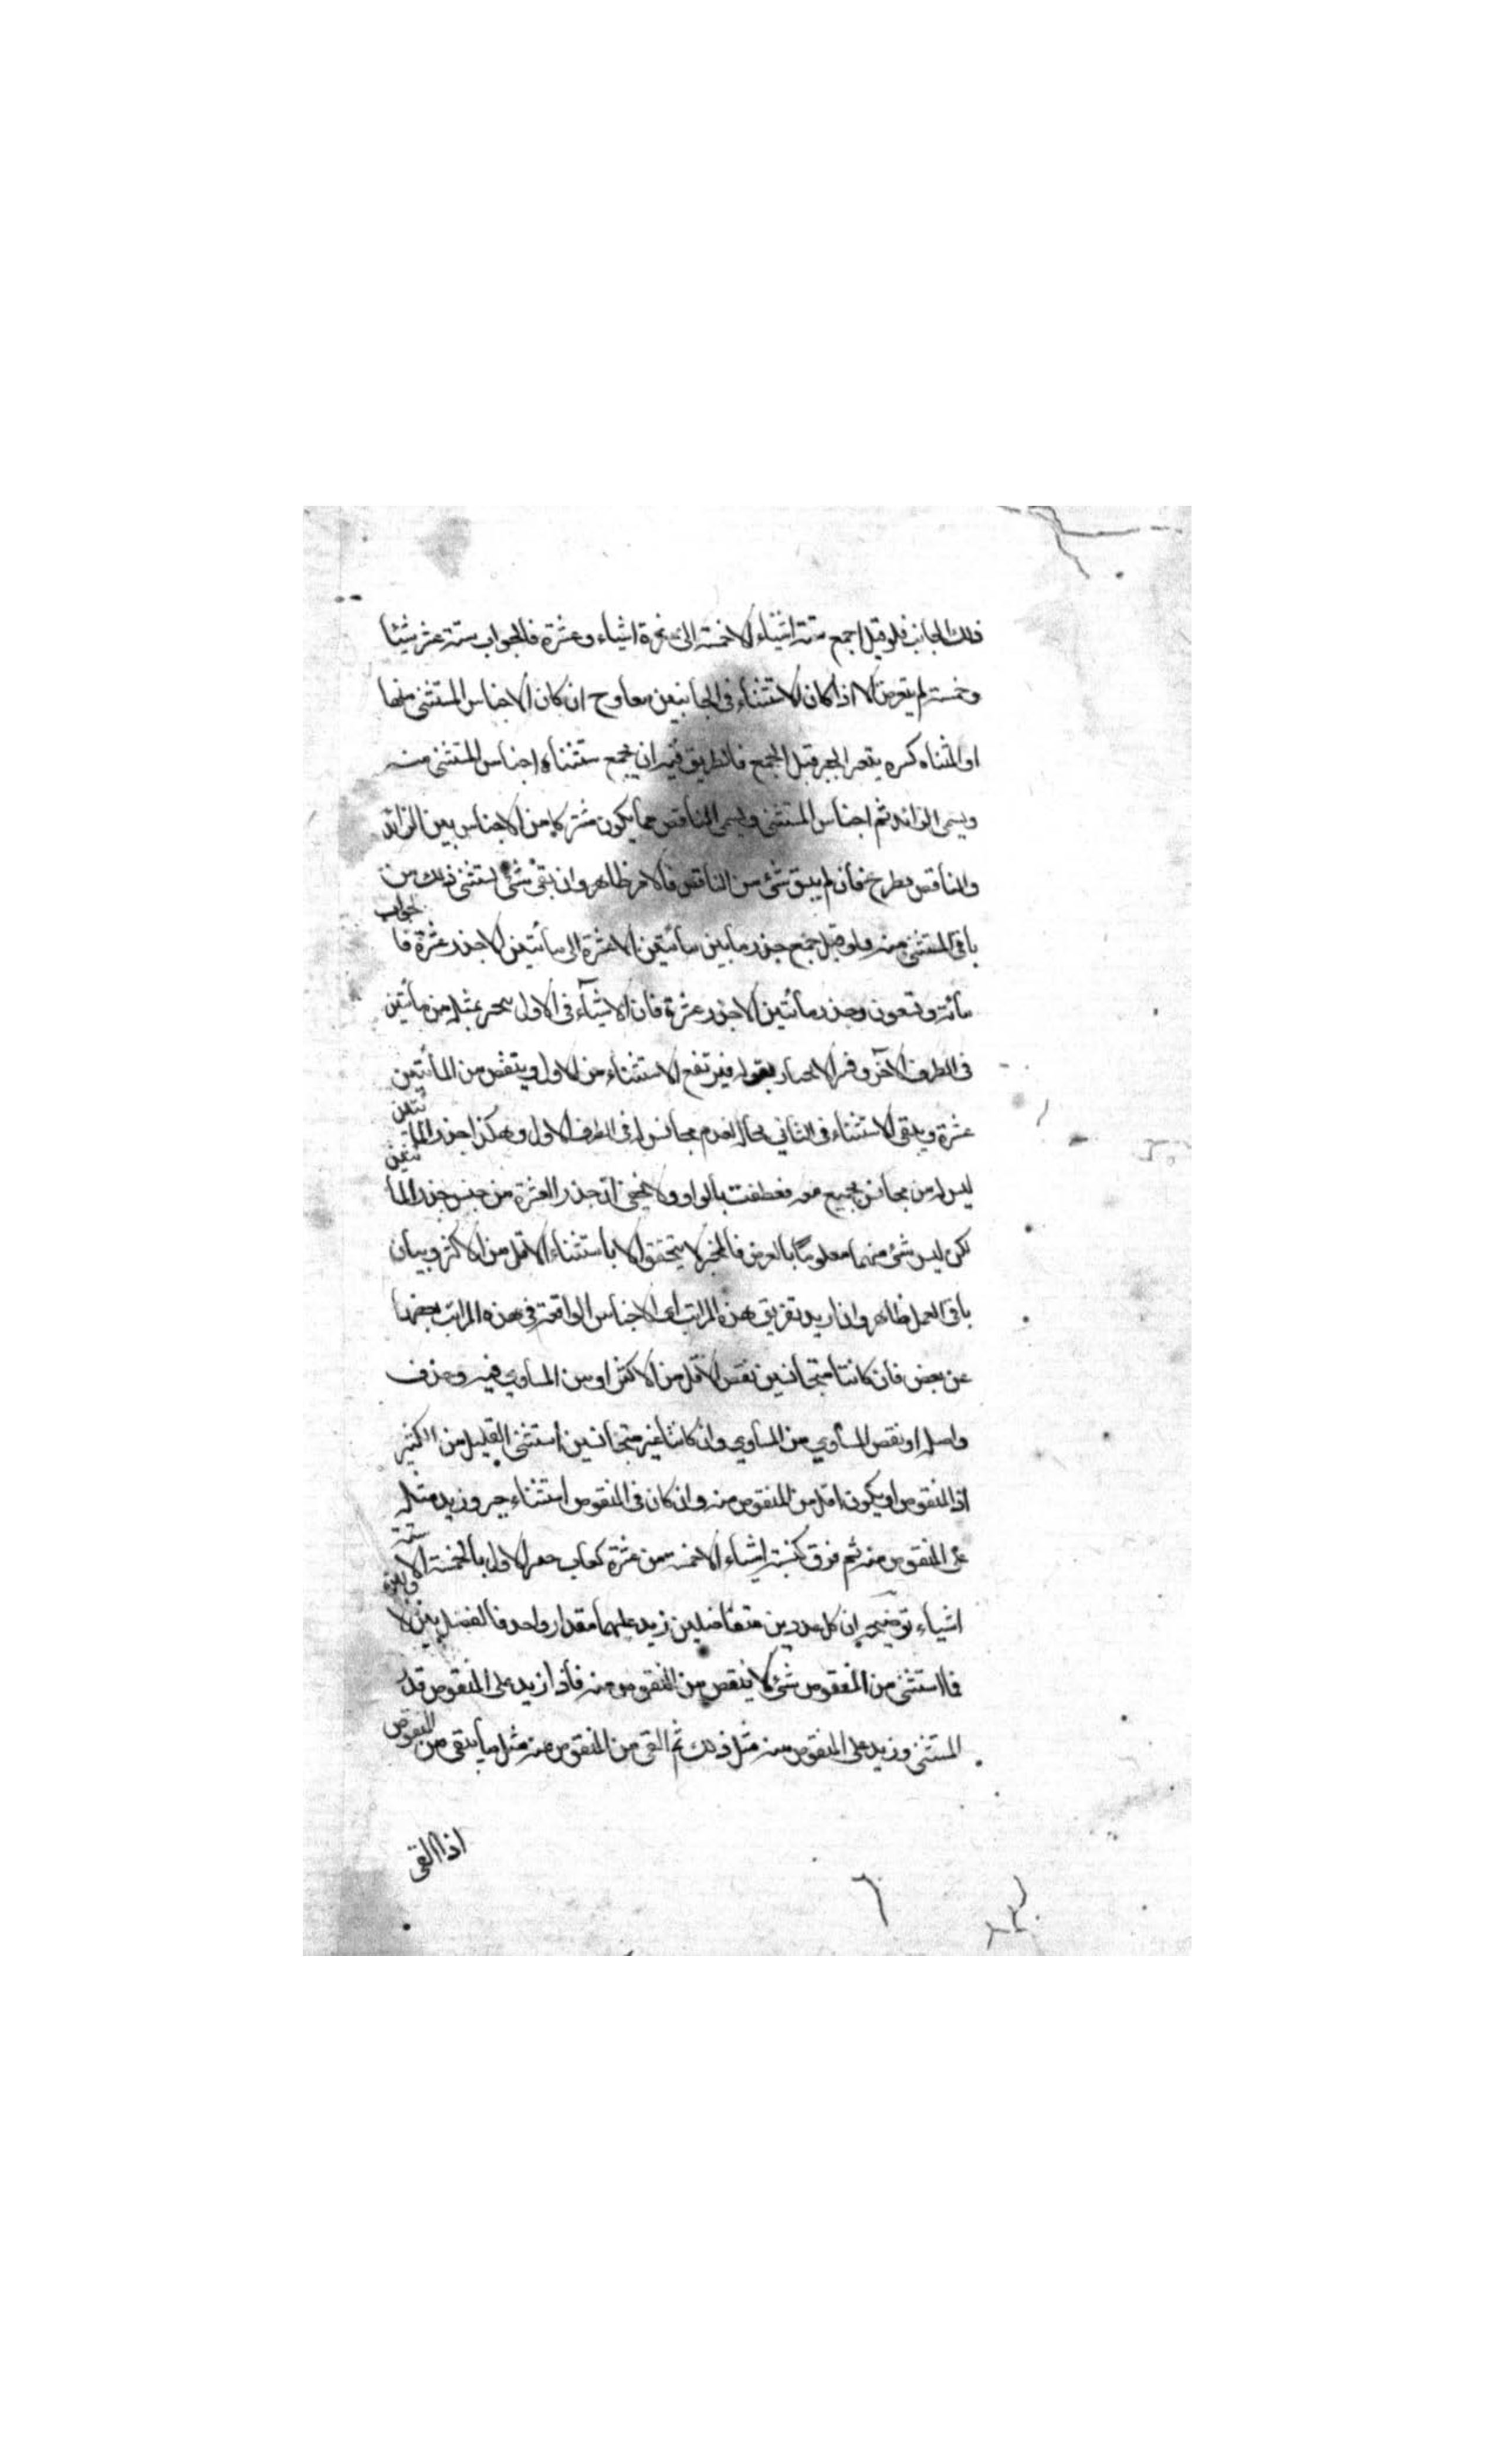 ذلك الجانب فلو قيل اجمع ستة اشياء الا خمسة الى عشرة اشياء وعشرة فالجواب ستة عشر شيئا
وخمسة لم يتعرض الا اذا كان الاستثناء فى الجانبين معا وح ان كان الاجناس المستثنى منها
او المثناه كسره يتعسر الجبر قبل الجمع فالطريق فيه ان يجمع ستثناه اجناس المستثنى منه
ويسمى الزائد ثم اجناس المستثنى ويسمى الناقص مما يكون مشتركا من الاجناس بين الزائد
والناقص يطرح فان لم يبق شئ من الناقص فالامر ظاهر وان بقى شئ استثنى ذلك من
باقى المستثنى منه ولو قيل اجمع جذر مابين مأتين الا عشرة الى مأتين الا جذر عشرة فا
لجواب
مأئة وتسعون وجذر مأتين الا جذر عشرة فان الاشيآء فى الاول يجبر بمثله من مأتين
فى الطرف الآخر وفسر الانجبار بقوله فيرتفع الاستثناء من الاول وينقص من المأتين
عشرة ويبقى الاستثناء فى الثاني بحاله لعدم مجانس له فى الطرف الاول وهكذا جذر الما
ئتين
ليس له من مجانس يجمع معه فعطفت بالواو ولا يخفى ان جذر العشرة من جنس جذر المأ
ئتين
لكن ليس شئ منهما معلوما بالفرض فالجبر لا يتحقق الا باستثناء الاقل من الاكثر وبيان
باقى العمل ظاهر وان اريد تفريق هذه المراتب اى الاجناس الواقعة فى هذه المراتب بعضها
عن بعض فان كانتا متجانسين نقص الاقل من الاكثر او من المساوي فيه وحذف
واصله او نقص المساوي من المساوي وان كانتا غير متجانسين استثنى القليل من الكثير
اذ المنقوص او يكون اقل من المنقوص منه وان كان فى المنقوص استثناء جبر وزيد مثله
على المنقوص منه ثم فرق كستة اشياء الا خمسة من عشرة كعاب جبر الاول بالخمسة الا
ستة
اشياء توضيحه ان كل عددين متفاضلين زيد عليهما مقدار واحد فالفضل بين الا
ولين
فما استثنى من المنقوص شئ لا ينقص من المنقوص منه فاذا زيد على المنقوص قدر
المستثنى وزيد على المنقوص منه مثل ذلك ثم القى من المنقوص منه مثل ما يبقى من المنقوص
اذا القى